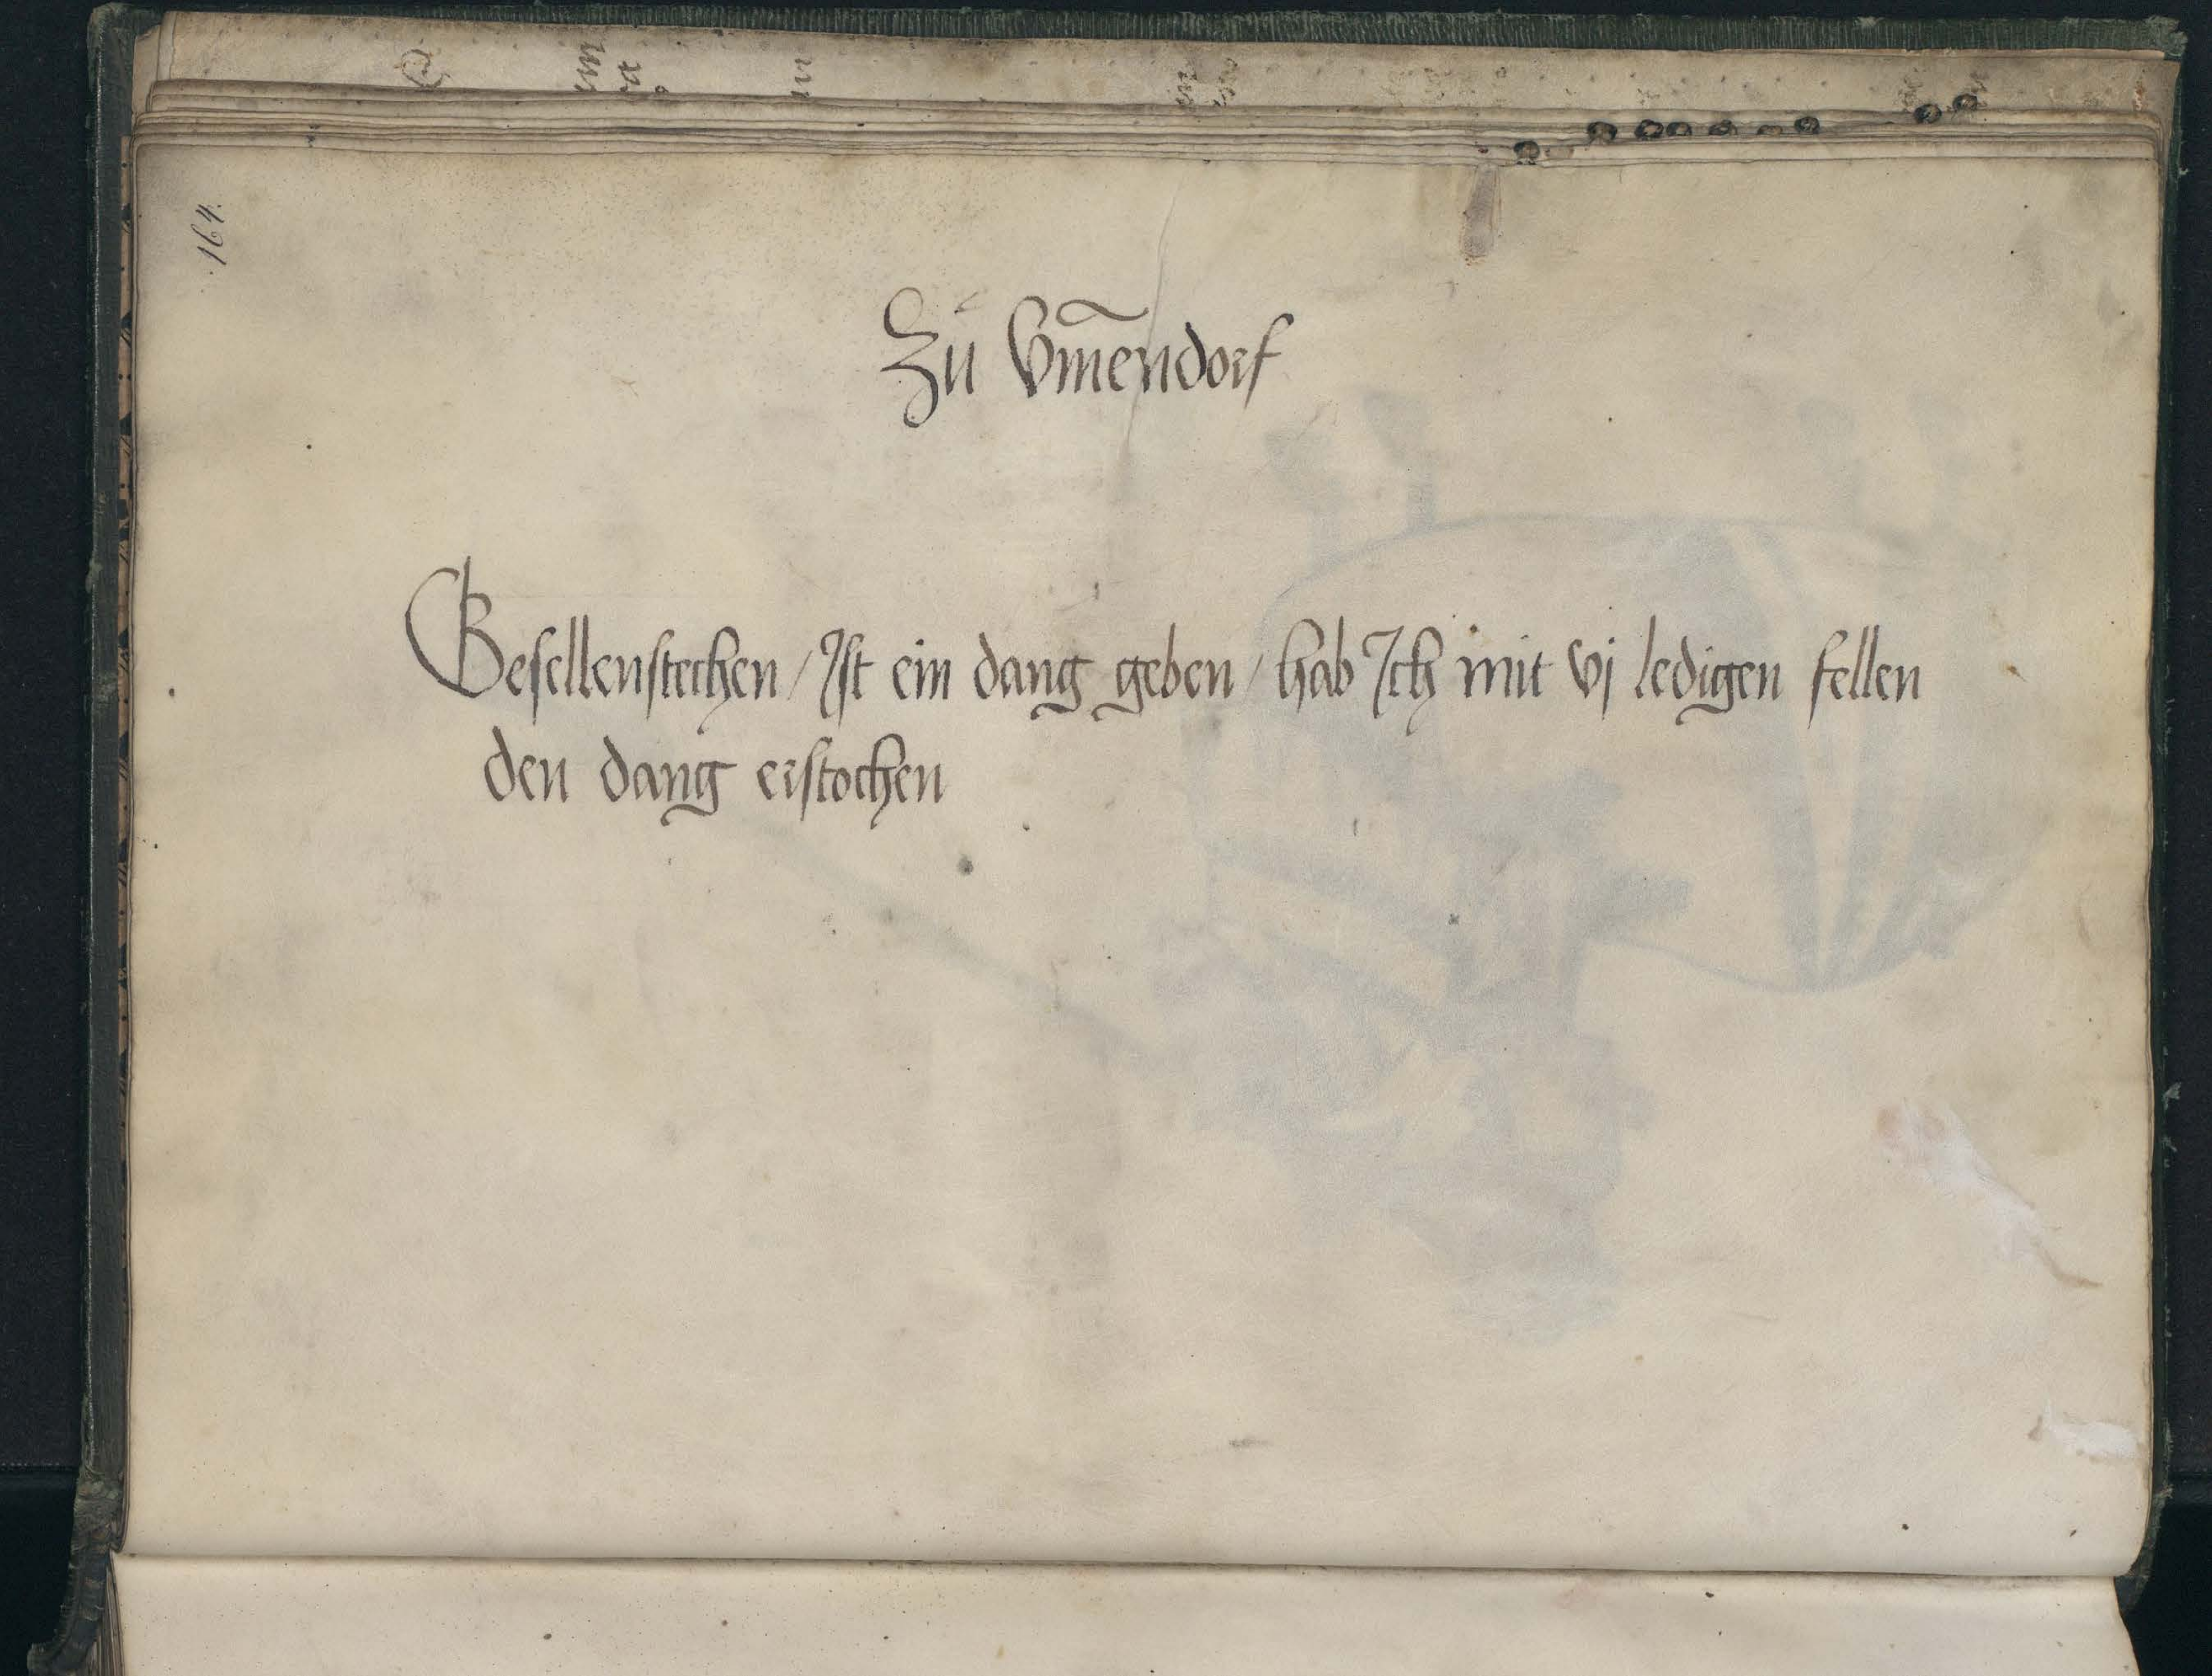 164.
Zů Vm̃endorf
Gesellenstechen / Ist ein dang geben / hab Ich mit vj ledigen fellen
den dang erstochen